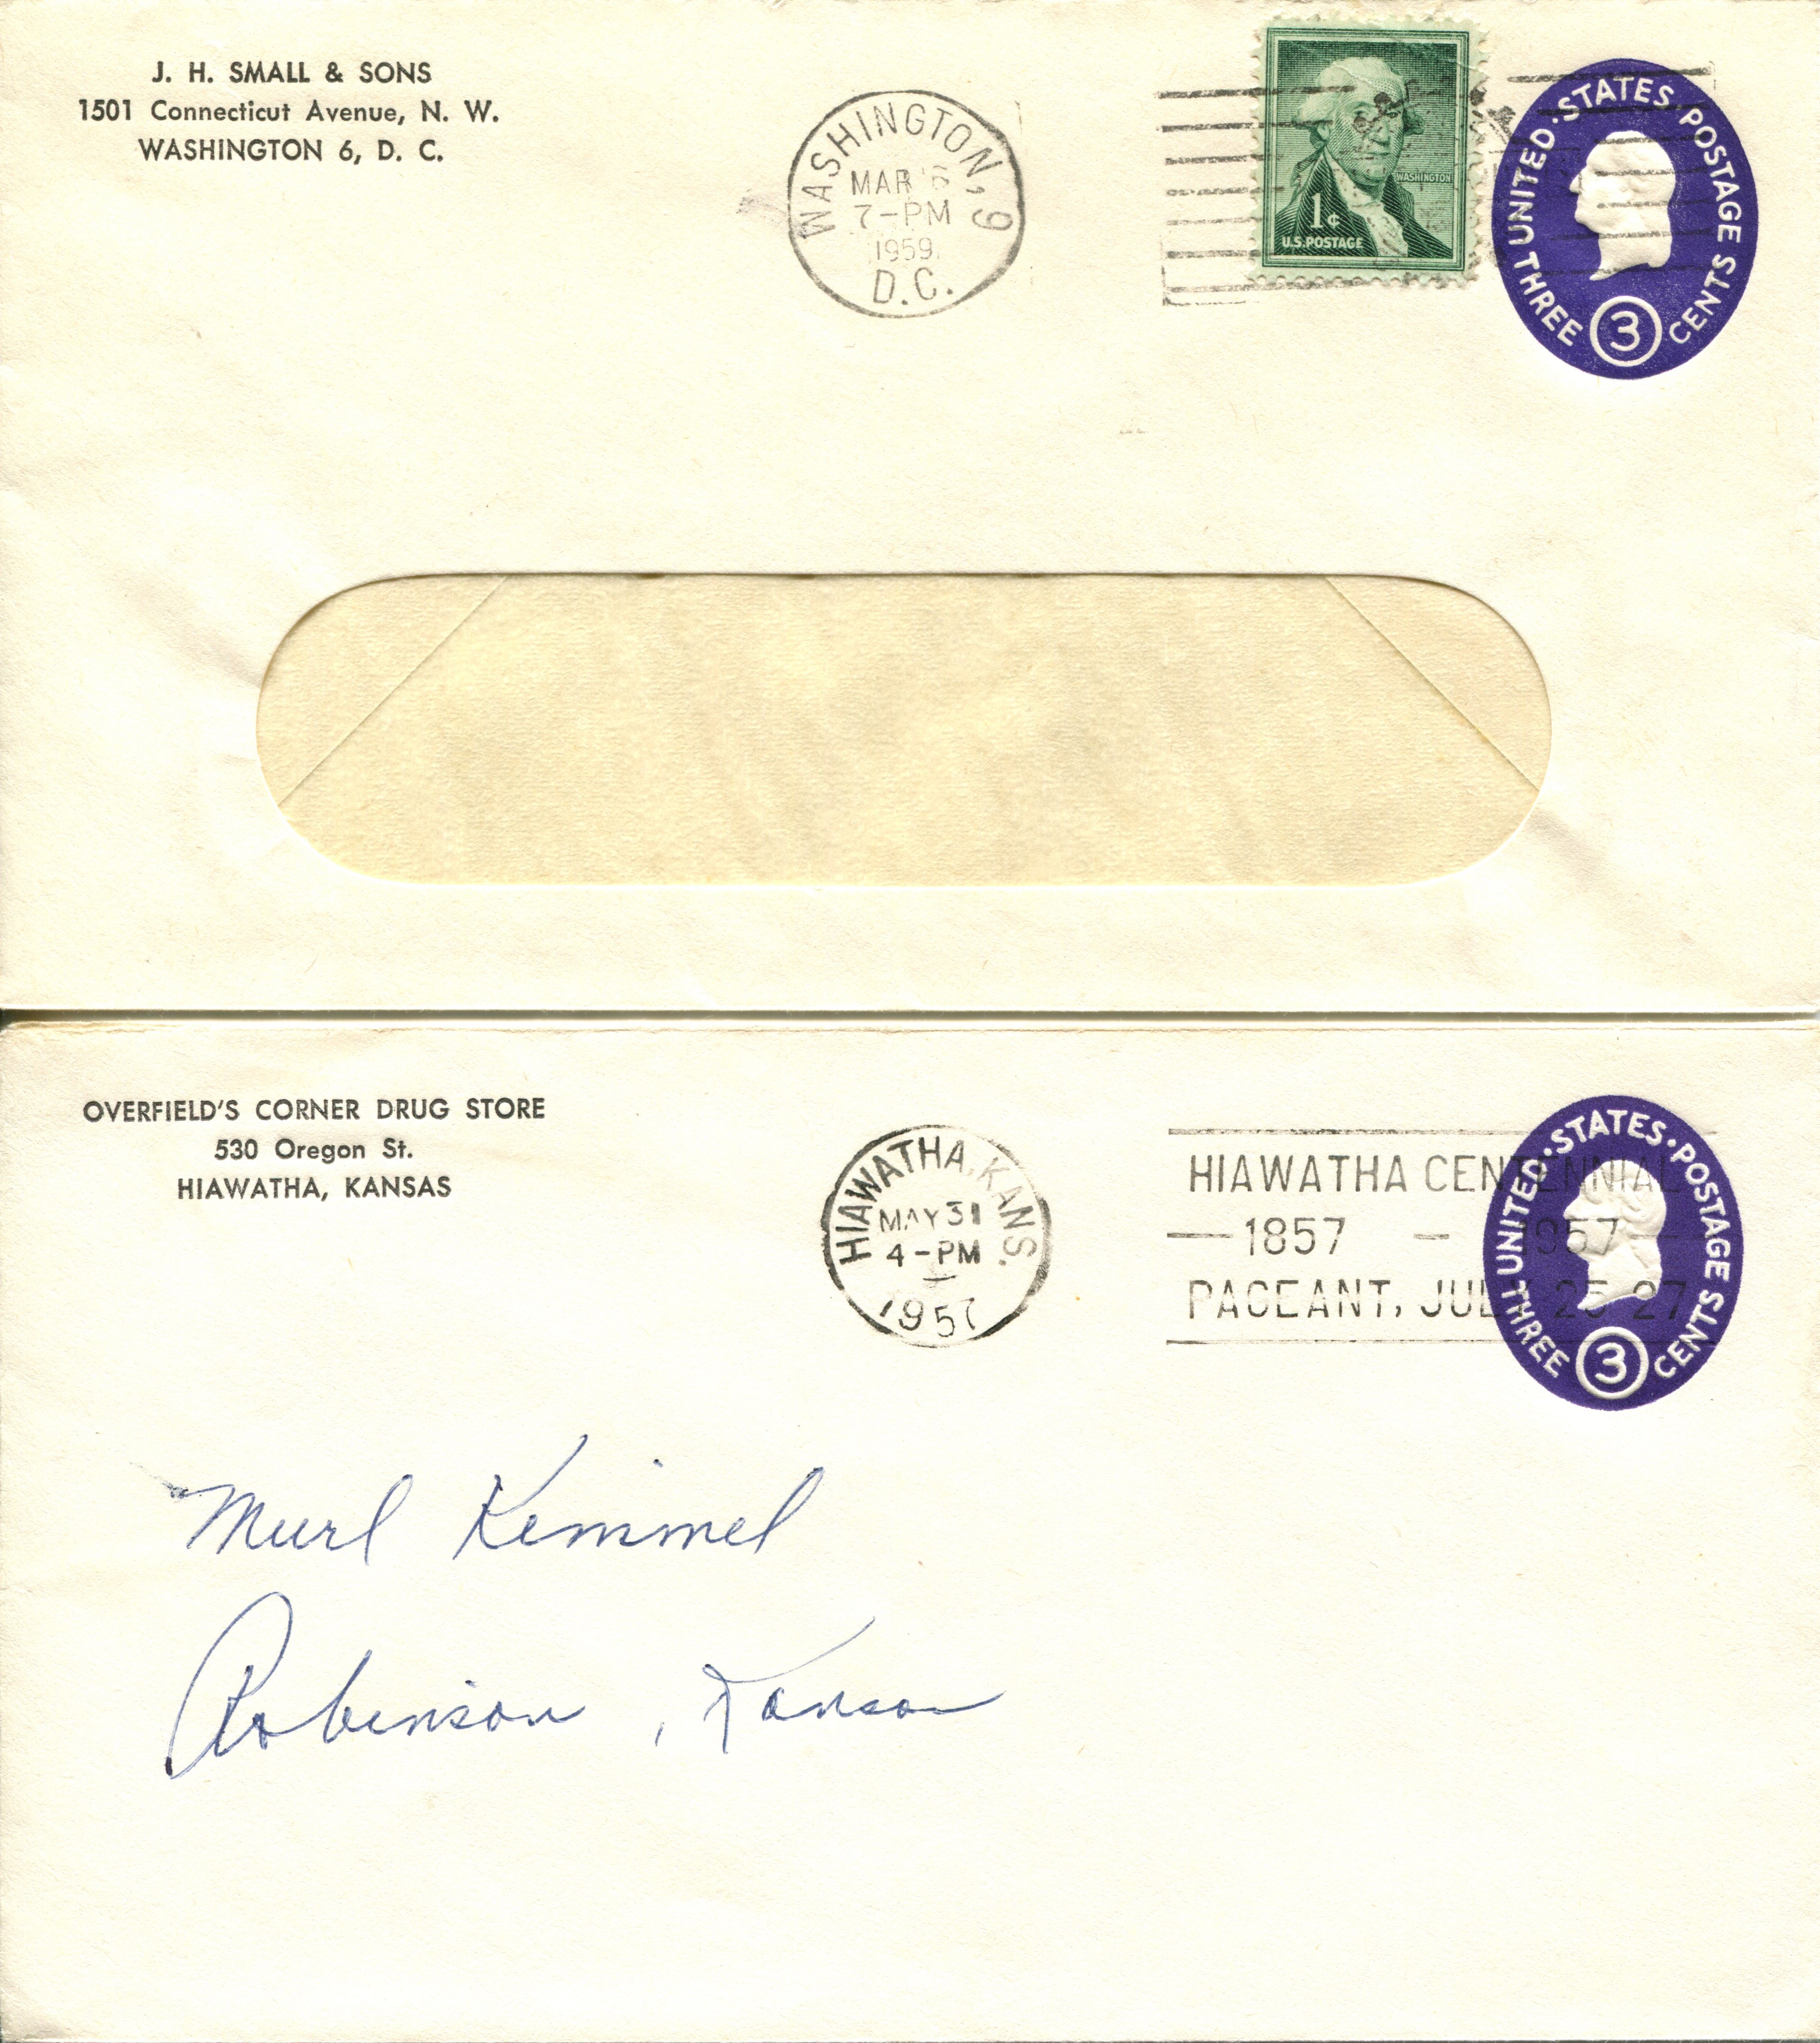 J. H. SMALL & SONS
1501 Connecticut Avenue, N. W.
WASHINGTON 6, D. C.
WASHINGTON, 9
MAR 6
7-PM
1959
D.C.
WASHINGTON
1¢
U.S. POSTAGE
UNITED · STATES · POSTAGE
THREE 3 CENTS
OVERFIELD'S CORNER DRUG STORE
530 Oregon St.
HIAWATHA, KANSAS
HIAWATHA, KANS.
MAY 31
4-PM
1957
HIAWATHA CENTENNIAL
— 1857 — 1957 —
PAGEANT, JULY 25-27
UNITED · STATES · POSTAGE
THREE 3 CENTS
Murl Kimmel
Robinson, Kansas